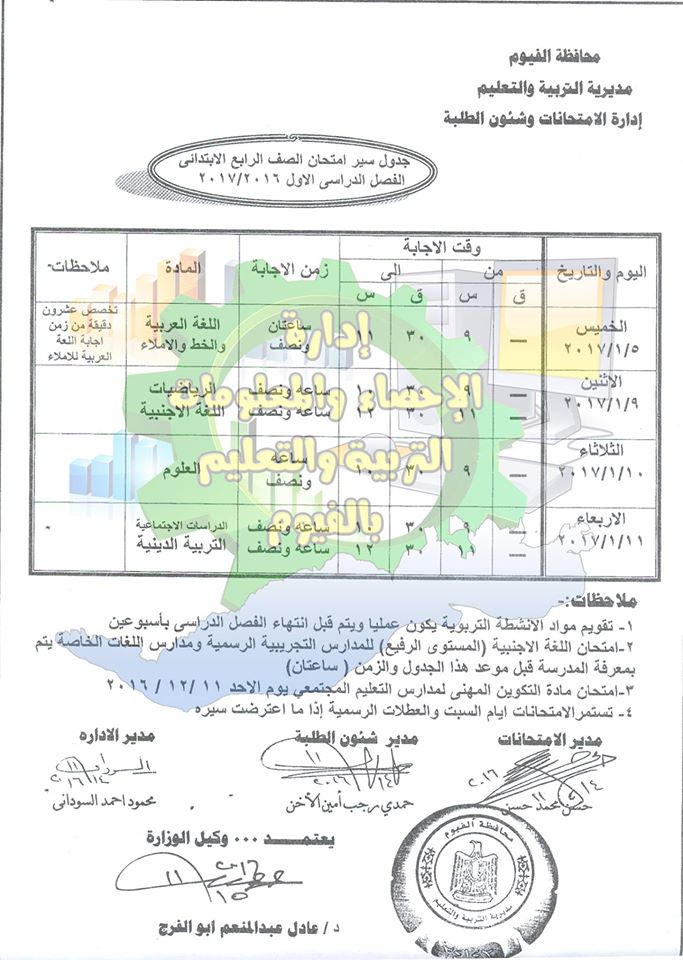 محافظة الفيوم
مديرية التربية والتعليم
إدارة الامتحانات وشئون الطلبة
جدول سير امتحان الصف الرابع الابتدائى
الفصل الدراسى الاول ٢٠١٧/٢٠١٦
اليوم والتاريخ وقت الاجابة زمن الاجابة المادة ملاحظات-
من الى
ق س ق س
الخميس ٢٠١٧/١/٥ — ٩ ٣٠ ١١ ساعتان ونصف اللغة العربية والخط والاملاء تخصص عشرون دقيقة من زمن اجابة اللغة العربية للاملاء
الاثنين ٢٠١٧/١/٩ — ٩ ٣٠ ١٠ ساعه ونصف الرياضيات
— ١١ ٣٠ ١٢ ساعه ونصف اللغة الأجنبية
الثلاثاء ٢٠١٧/١/١٠ — ٩ ٣٠ ١٠ ساعه ونصف العلوم
الاربعاء ٢٠١٧/١/١١ — ٩ ٣٠ ١٠ ساعه ونصف الدراسات الاجتماعية
— ١١ ٣٠ ١٢ ساعه ونصف التربية الدينية
إدارة
الإحصاء والمعلومات
التربية والتعليم
بالفيوم
ملاحظات:-
١- تقويم مواد الانشطة التربوية يكون عمليا ويتم قبل انتهاء الفصل الدراسى بأسبوعين
٢-امتحان اللغة الاجنبية (المستوى الرفيع) للمدارس التجريبية الرسمية ومدارس اللغات الخاصة يتم
بمعرفة المدرسة قبل موعد هذا الجدول والزمن ( ساعتان)
٣-امتحان مادة التكوين المهنى لمدارس التعليم المجتمعي يوم الاحد ١١ /١٢ / ٢٠١٦
٤- تستمرالامتحانات ايام السبت والعطلات الرسمية إذا ما اعترضت سيره
مدير الامتحانات مدير شئون الطلبة مدير الاداره
حسن محمد حسن حمدي رجب أمين الأخن محمود احمد السودانى
يعتمد ٠٠٠ وكيل الوزارة
د / عادل عبدالمنعم ابو الفرج
محافظة الفيوم
مديرية التربية والتعليم